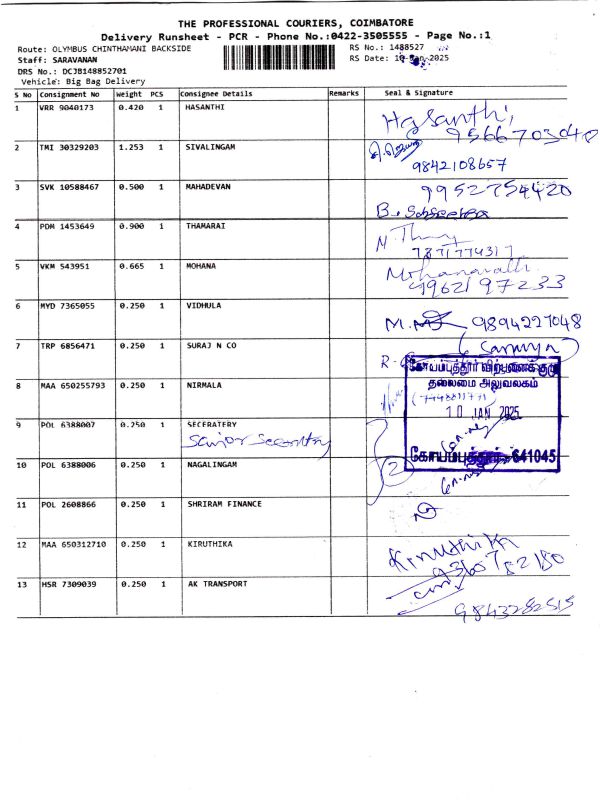 THE PROFESSIONAL COURIERS, COIMBATORE
Delivery Runsheet - PCR - Phone No.:0422-3505555 - Page No.:1
Route: OLYMBUS CHINTHAMANI BACKSIDE RS No.: 1488527
Staff: SARAVANAN RS Date: 10-Jan-2025
DRS No.: DCJB148852701
Vehicle: Big Bag Delivery
S No Consignment No Weight PCS Consignee Details Remarks Seal & Signature
1 VRR 9040173 0.420 1 HASANTHI Hasanthi
9566703048
2 TMI 30329203 1.253 1 SIVALINGAM
9842108657
3 SVK 10588467 0.500 1 MAHADEVAN 9952754420
4 PDM 1453649 0.900 1 THAMARAI
7871774317
5 VKM 543951 0.665 1 MOHANA
9962197233
6 MYD 7365055 0.250 1 VIDHULA 9894227048
7 TRP 6856471 0.250 1 SURAJ N CO
கோயம்புத்தூர் விற்பனைக்குழு
8 MAA 650255793 0.250 1 NIRMALA தலைமை அலுவலகம்
10 JAN 2025
9 POL 6388007 0.250 1 SECERATERY
கோயம்புத்தூர் - 641045
10 POL 6388006 0.250 1 NAGALINGAM 2
11 POL 2608866 0.250 1 SHRIRAM FINANCE
12 MAA 650312710 0.250 1 KIRUTHIKA Kiruthika
9360782180
13 HSR 7309039 0.250 1 AK TRANSPORT
9843282515